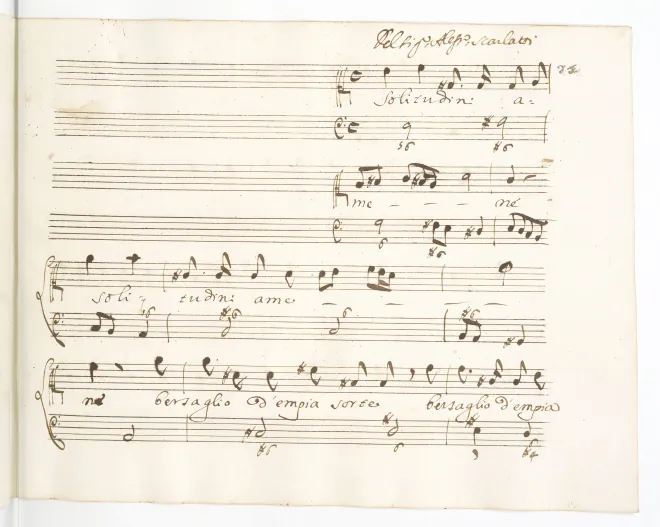 Del Sigr. Aless. Scarlatti
Solitudini a=
me - - - ne
soli tudini ame - - - -
ne bersaglio d'empia sorte bersaglio d'empia